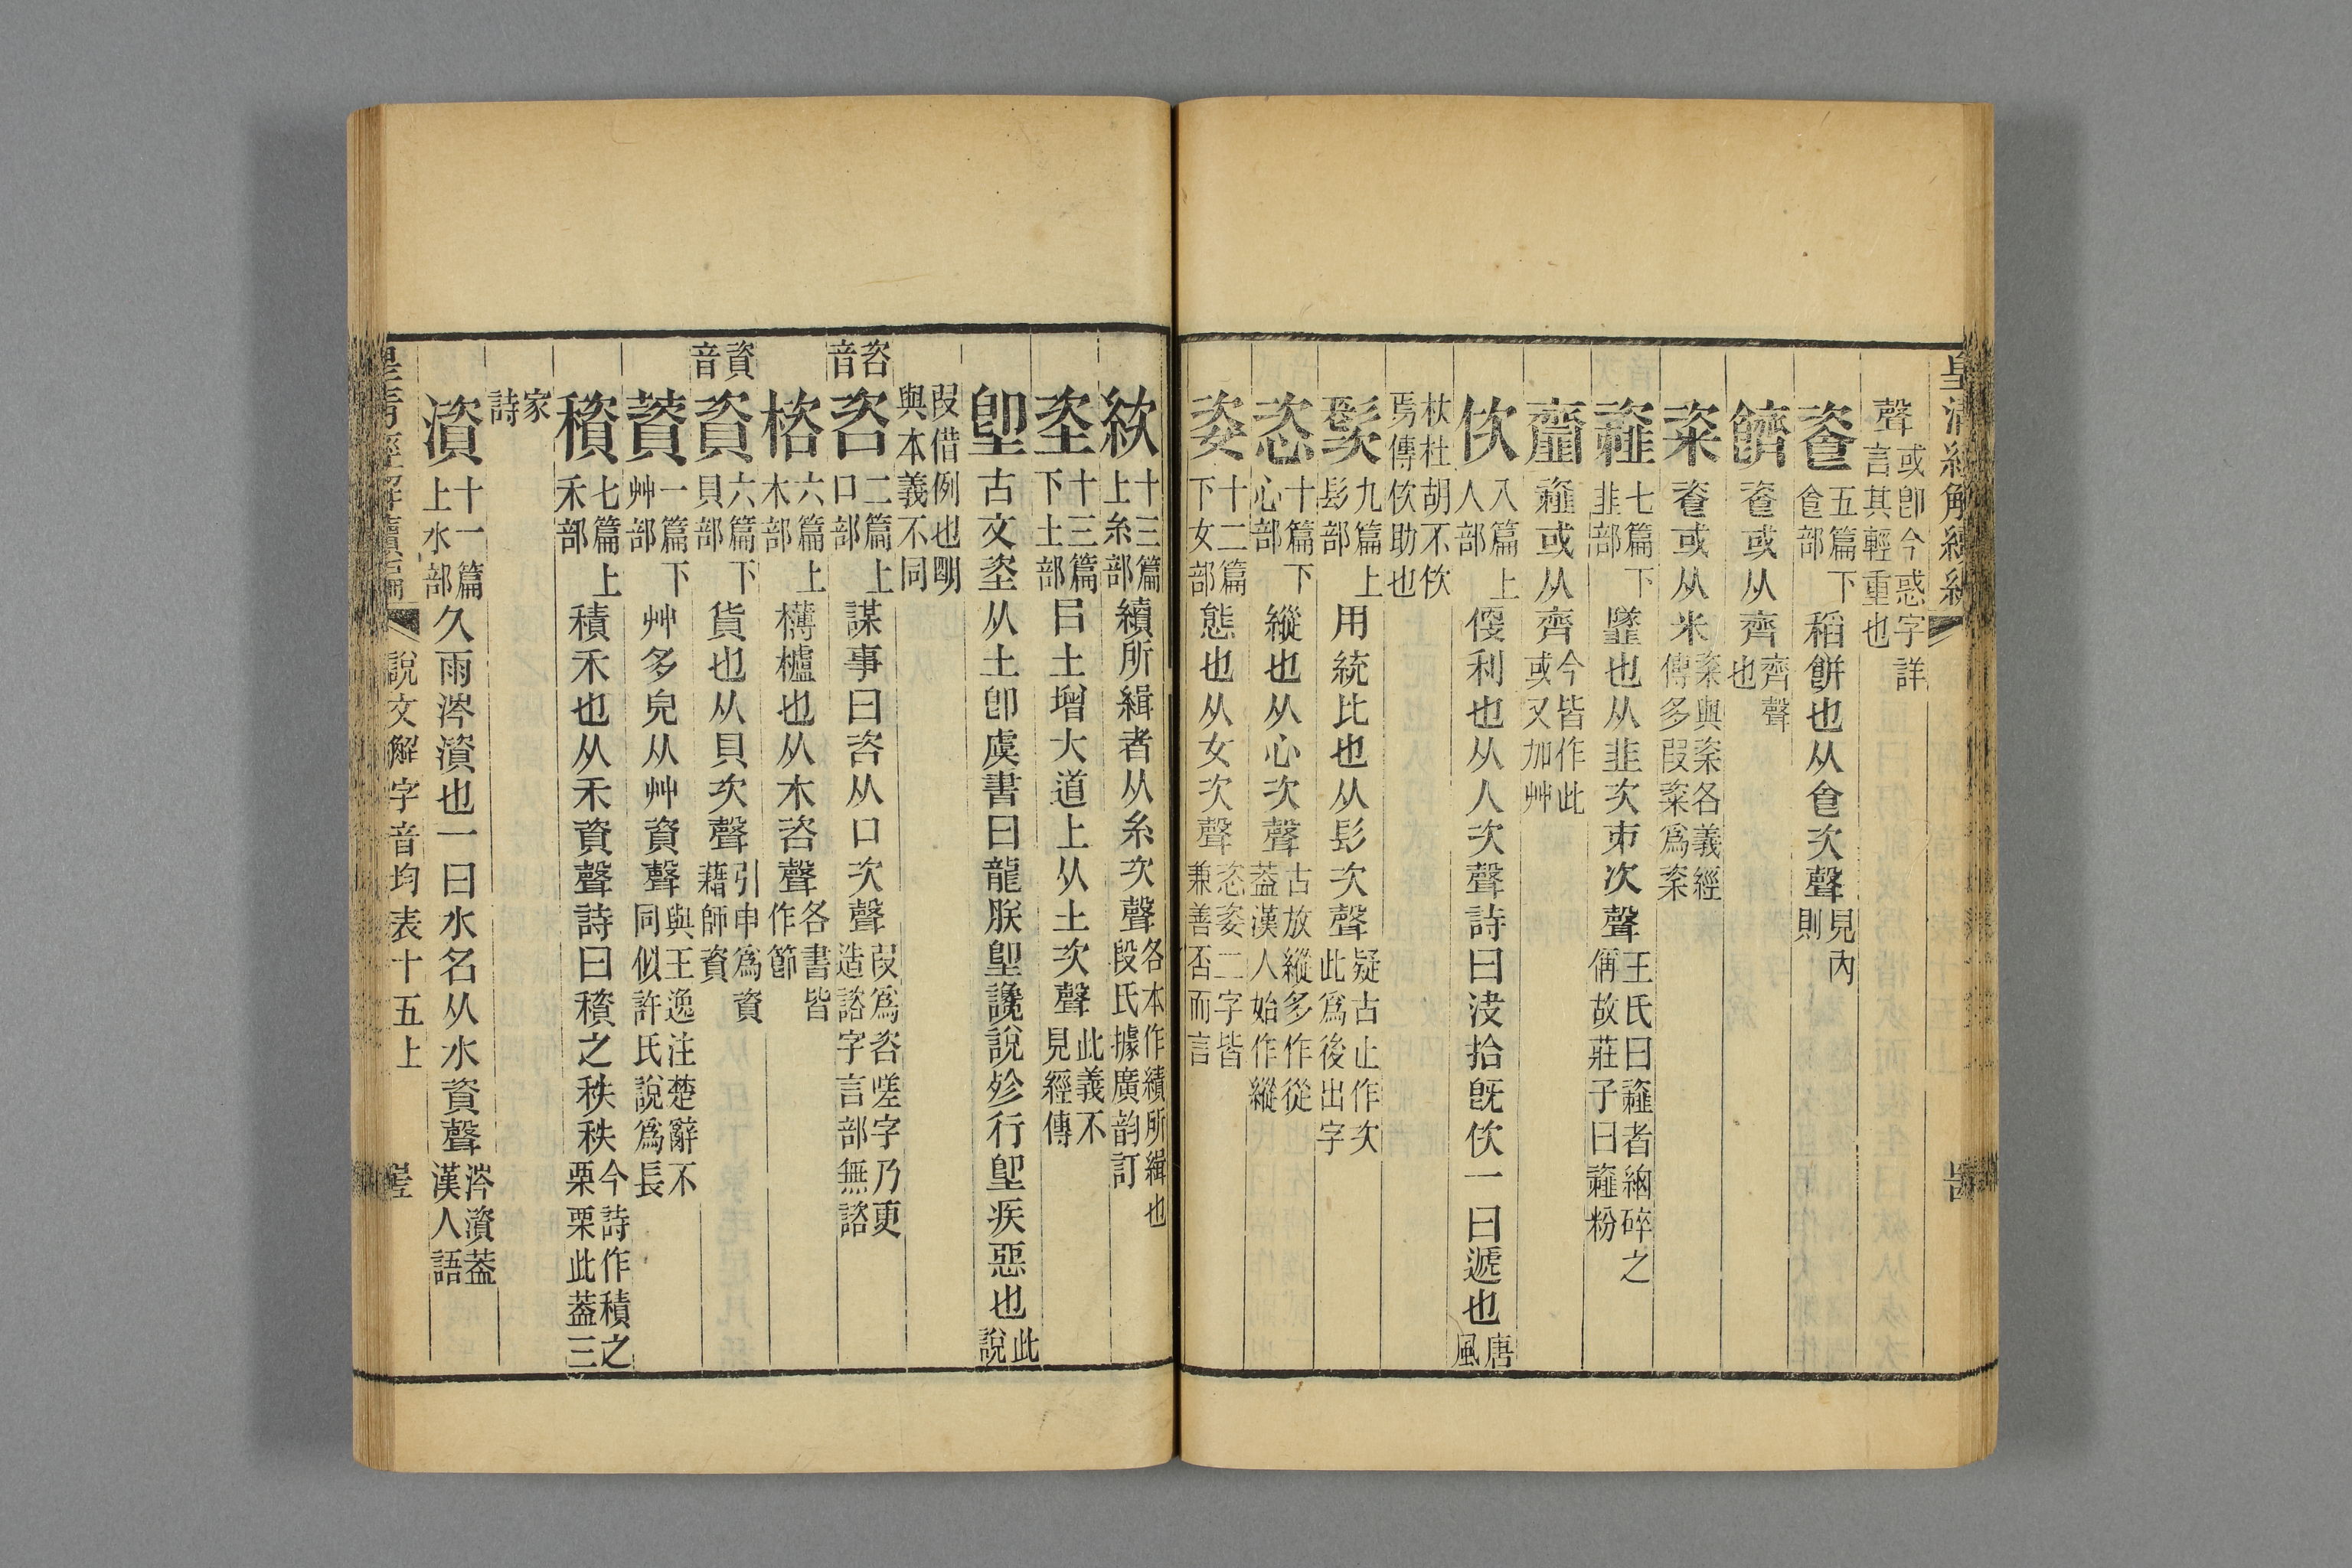 皇清經解續編
聲或卽今惑字詳言其輕重也
餈五篇下𠊊部稻餅也从𠊊次聲見內則
䭣餈或从齊齊聲也
粢餈或从米粢與秶各義經傳多叚粢爲秶
𩐋七篇下韭部䪢也从韭次㠿次聲王氏曰𩐋者細碎之偁故莊子曰𩐋粉
齏𩐋或从齊今皆作此或又加艸
佽八篇上人部便利也从人次聲詩曰決拾旣佽一曰遞也唐風
杕杜胡不佽焉傳佽助也
髮九篇上髟部用統比也从髟次聲疑古止作次此爲後出字
恣十篇下心部縱也从心次聲古放縱多作從蓋漢人始作縱
姿十二篇下女部態也从女次聲恣姿二字皆兼善否而言
絘十三篇上糸部績所緝者从糸次聲各本作績所緝也段氏據廣韵訂
垐十三篇下土部㠯土增大道上从土次聲此義不見經傳
堲古文垐从土卽虞書曰龍朕堲讒說殄行堲疾惡也此說
叚借例也朙與本義不同
咨音咨二篇上口部謀事曰咨从口次聲叚爲咨嗟字乃更造諮字言部無諮
楶六篇上木部欂櫨也从木咨聲各書皆作節
資音資六篇下貝部貨也从貝次聲引申爲資藉師資
薋一篇下艸部艸多皃从艸資聲與王逸注楚辭不同似許氏說爲長
穧七篇上禾部積禾也从禾資聲詩曰穦之秩秩今詩作積之栗栗此蓋三
家詩
澬十一篇上水部久雨涔澬也一曰水名从水資聲涔澬蓋漢人語
皇清經解續編 說文解字音均表十五上